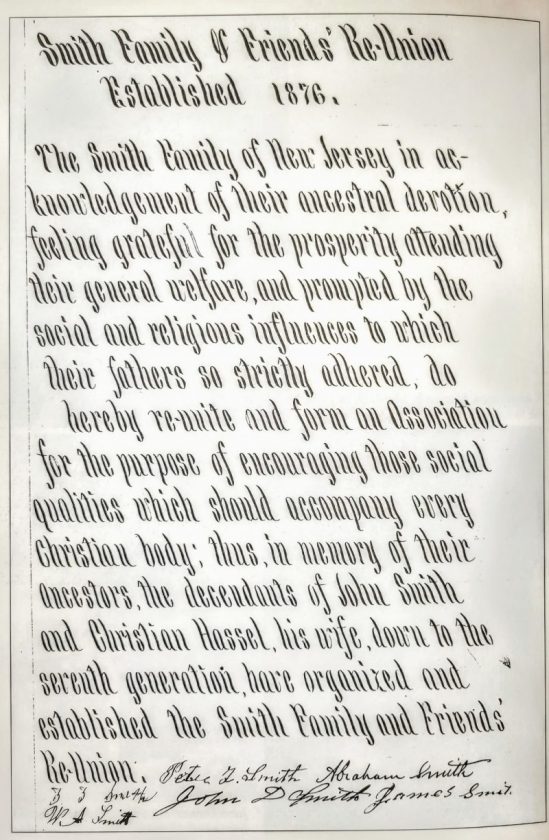 Smith Family & Friends' Re-Union
Established 1876.
The Smith Family of New Jersey in ac-
knowledgement of their ancestral devotion,
feeling grateful for the prosperity attending
their general welfare, and prompted by the
social and religious influences to which
their fathers so strictly adhered, do
hereby re-unite and form an Association
for the purpose of encouraging those social
qualities which should accompany every
Christian body; thus, in memory of their
ancestors, the decendants of John Smith
and Christian Hassel, his wife, down to the
seventh generation, have organized and
established the Smith Family and Friends'
Re-Union.
Peter Z. Smith Abraham Smith
Smith John D Smith James Smit.
W. A Smith